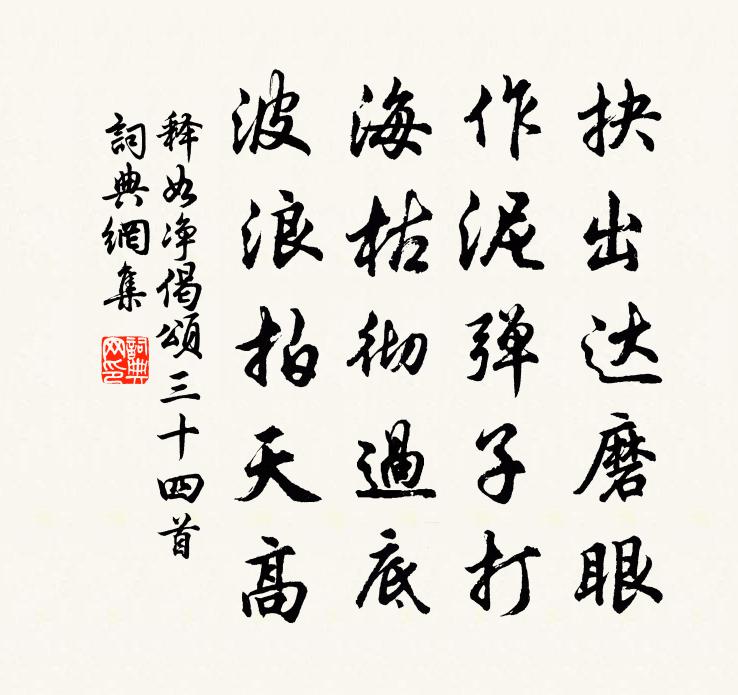 抉出达磨眼
作泥弹子打
海枯彻過底
波浪拍天高
释如净偈頌三十四首
詞典網集
詞典
网印